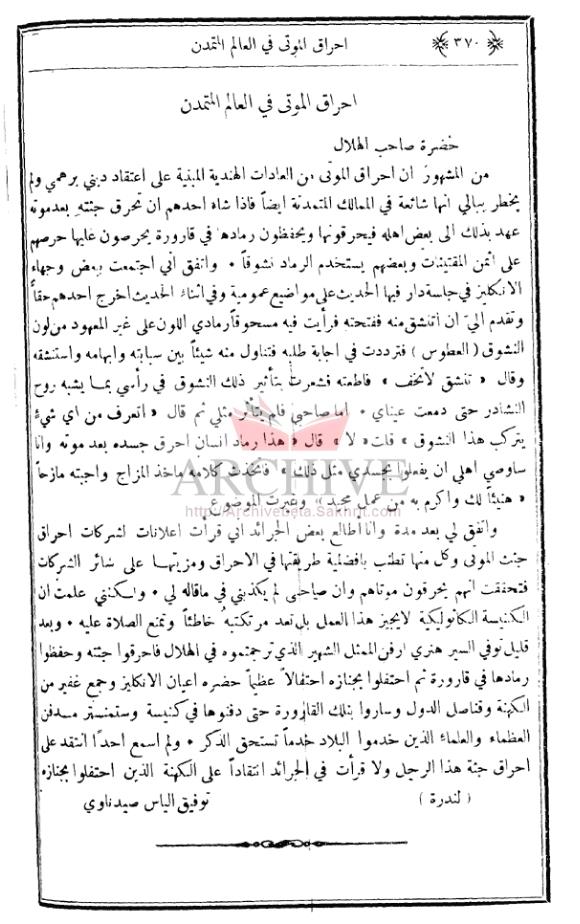 ٣٧٠ احراق الموتى في العالم المتمدن
احراق الموتى في العالم المتمدن
حضرة صاحب الهلال
من المشهور ان احراق الموتى من العادات الهندية المبنية على اعتقاد ديني برهمي ولم
يخطر ببالي انها شائعة في الممالك المتمدنة ايضاً فاذا شاء احدهم ان تحرق جثته بعد موته
عهد بذلك الى بعض اهله فيحرقونها ويحفظون رمادها في قارورة يحرصون عليها حرصهم
على اثمن المقتنيات وبعضهم يستخدم الرماد نشوقاً • واتفق اني اجتمعت ببعض وجهاء
الانكليز في جلسة دار فيها الحديث على مواضيع عمومية وفي اثناء الحديث اخرج احدهم حقاً
وتقدم اليّ ان اتنشق منه ففتحته فرأيت فيه مسحوقاً رمادي اللون على غير المعهود من لون
النشوق ( العطوس ) فترددت في اجابة طلبه فتناول منه شيئاً بين سبابته وابهامه واستنشقه
وقال « تنشق لا تخف » فاطعته فشعرت بتأثير ذلك النشوق في رأسي بما يشبه روح
النشادر حتى دمعت عيناي • اما صاحبي فلم يتأثر مثلي ثم قال « اتعرف من اي شيء
يتركب هذا النشوق » قلت « لا » قال « هذا رماد انسان احرق جسده بعد موته وانا
ساوصي اهلي ان يفعلوا بجسدي مثل ذلك » فاتخذت كلامه مأخذ المزاح واجبته مازحاً
« هنيئاً لك واكرم به من عمل مجيد » وغيرت الموضوع
واتفق لي بعد مدة وانا اطالع بعض الجرائد اني قرأت اعلانات لشركات احراق
جثث الموتى وكل منها تطنب بافضلية طريقتها في الاحراق ومزيتها على سائر الشركات
فتحققت انهم يحرقون موتاهم وان صاحبي لم يكذبني في ما قاله لي • ولكنني علمت ان
الكنيسة الكاثوليكية لا يجيز هذا العمل بل تعد مرتكبهُ خاطئاً وتمنع الصلاة عليه • وبعد
قليل توفي السير هنري ارفن الممثل الشهير الذي ترجمتموه في الهلال فاحرقوا جثته وحفظوا
رمادها في قارورة ثم احتفلوا بجنازه احتفالاً عظيماً حضره اعيان الانكليز وجمع غفير من
الكهنة وقناصل الدول وساروا بتلك القارورة حتى دفنوها في كنيسة وستمنستر مدفن
العظماء والعلماء الذين خدموا البلاد خدماً تستحق الذكر • ولم اسمع احداً انتقد على
احراق جثة هذا الرجل ولا قرأت في الجرائد انتقاداً على الكهنة الذين احتفلوا بجنازه
( لندرة ) توفيق الياس صيدناوي
ARCHIVE
http://Archivebeta.Sakhrit.com